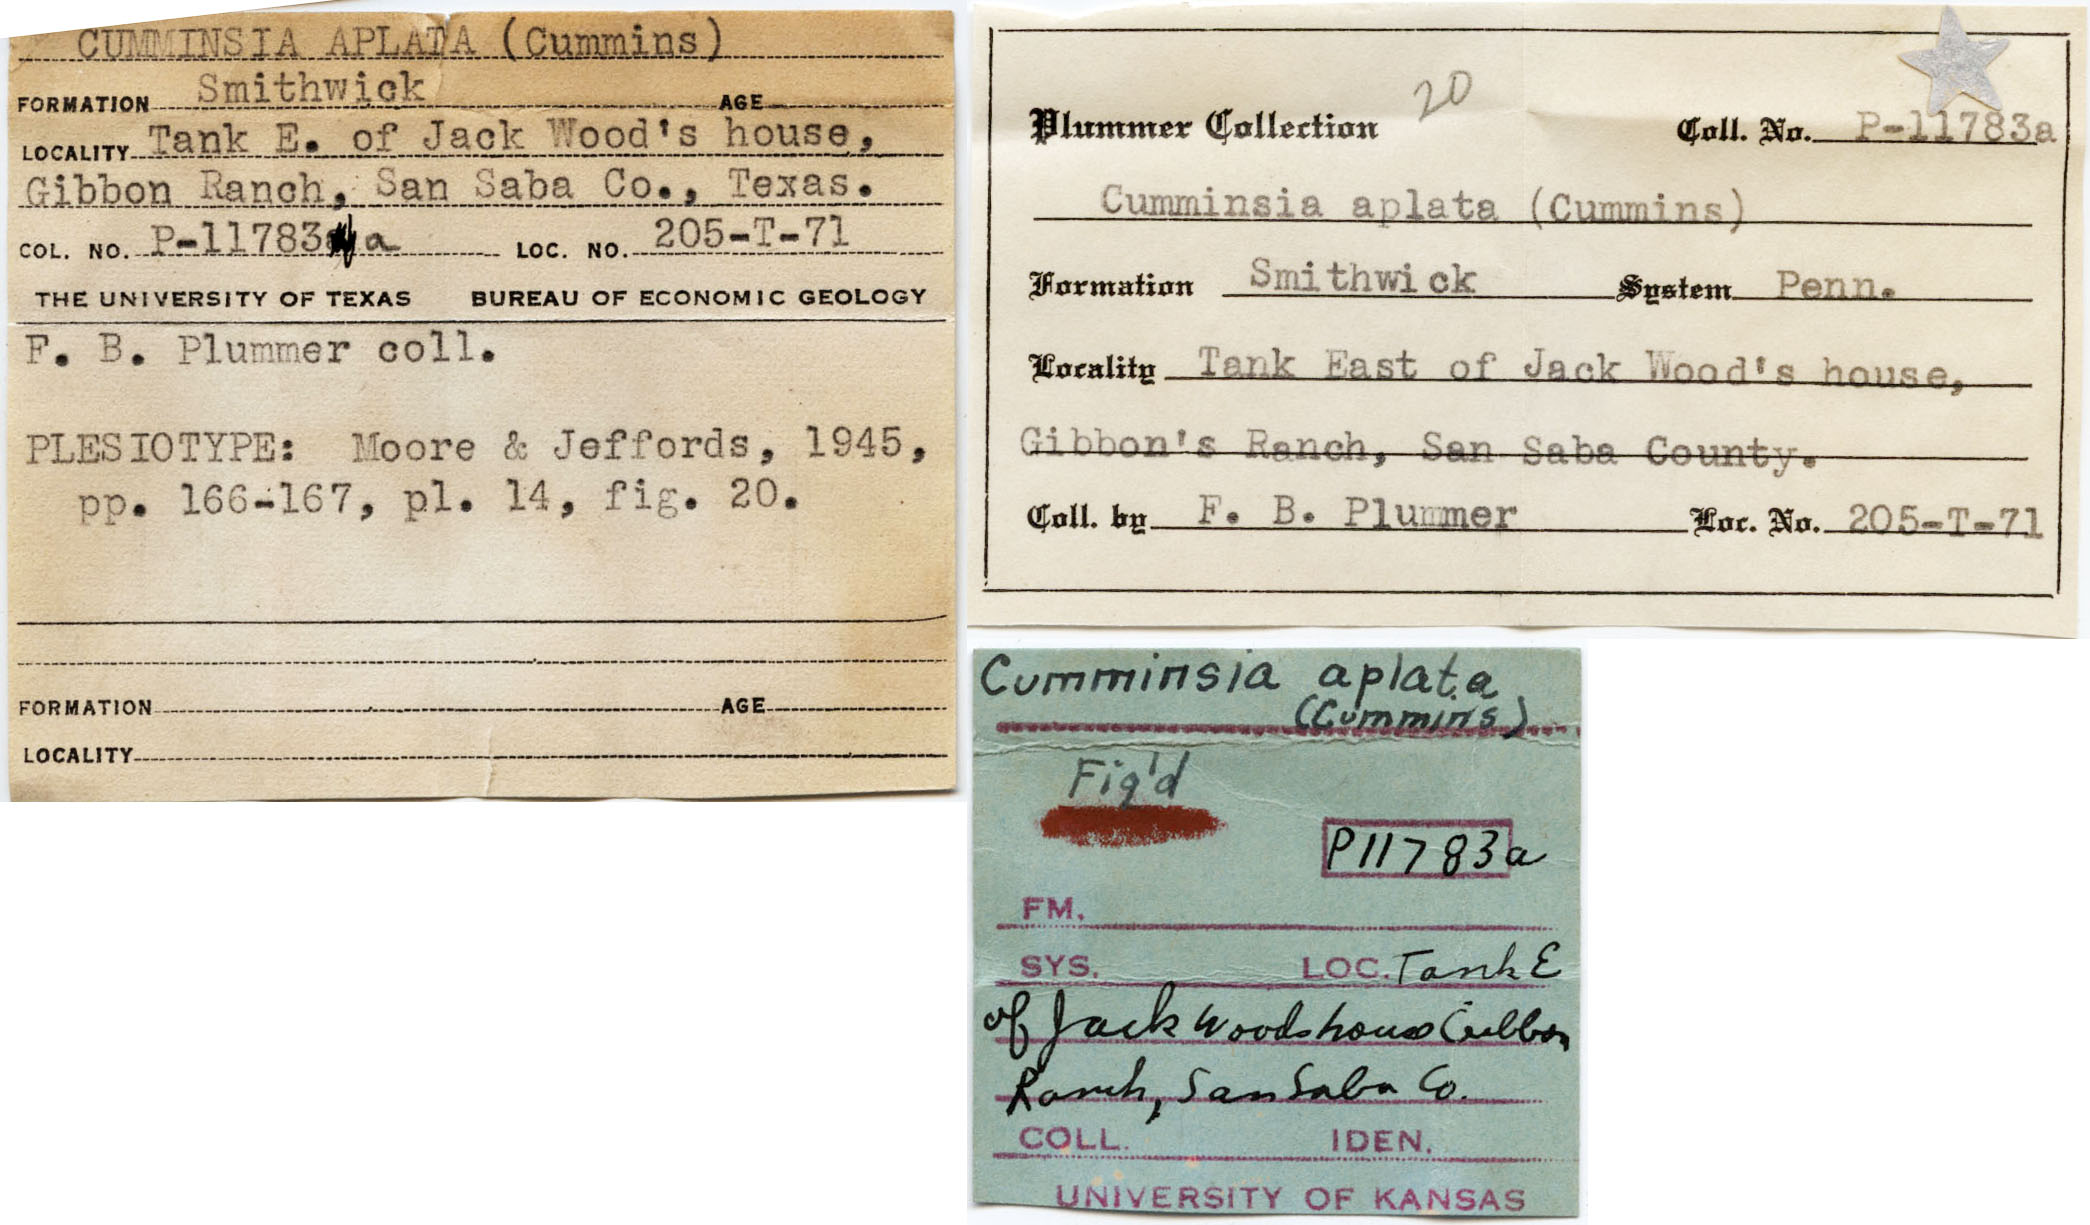 CUMMINSIA APLATA (Cummins)
FORMATION Smithwick AGE
LOCALITY Tank E. of Jack Wood's house,
Gibbon Ranch, San Saba Co., Texas.
COL. NO. P-11783 a LOC. NO. 205-T-71
THE UNIVERSITY OF TEXAS BUREAU OF ECONOMIC GEOLOGY
F. B. Plummer coll.
PLESIOTYPE: Moore & Jeffords, 1945,
pp. 166-167, pl. 14, fig. 20.
FORMATION AGE
LOCALITY
20
Plummer Collection Coll. No. P-11783a
Cumminsia aplata (Cummins)
Formation Smithwick System Penn.
Locality Tank East of Jack Wood's house,
Gibbon's Ranch, San Saba County.
Coll. by F. B. Plummer Loc. No. 205-T-71
Cumminsia aplata
(Cummins)
Fig'd
P11783a
FM.
SYS. LOC. Tank E
of Jack Woods house Gibbon
Ranch, San Saba Co.
COLL. IDEN.
UNIVERSITY OF KANSAS